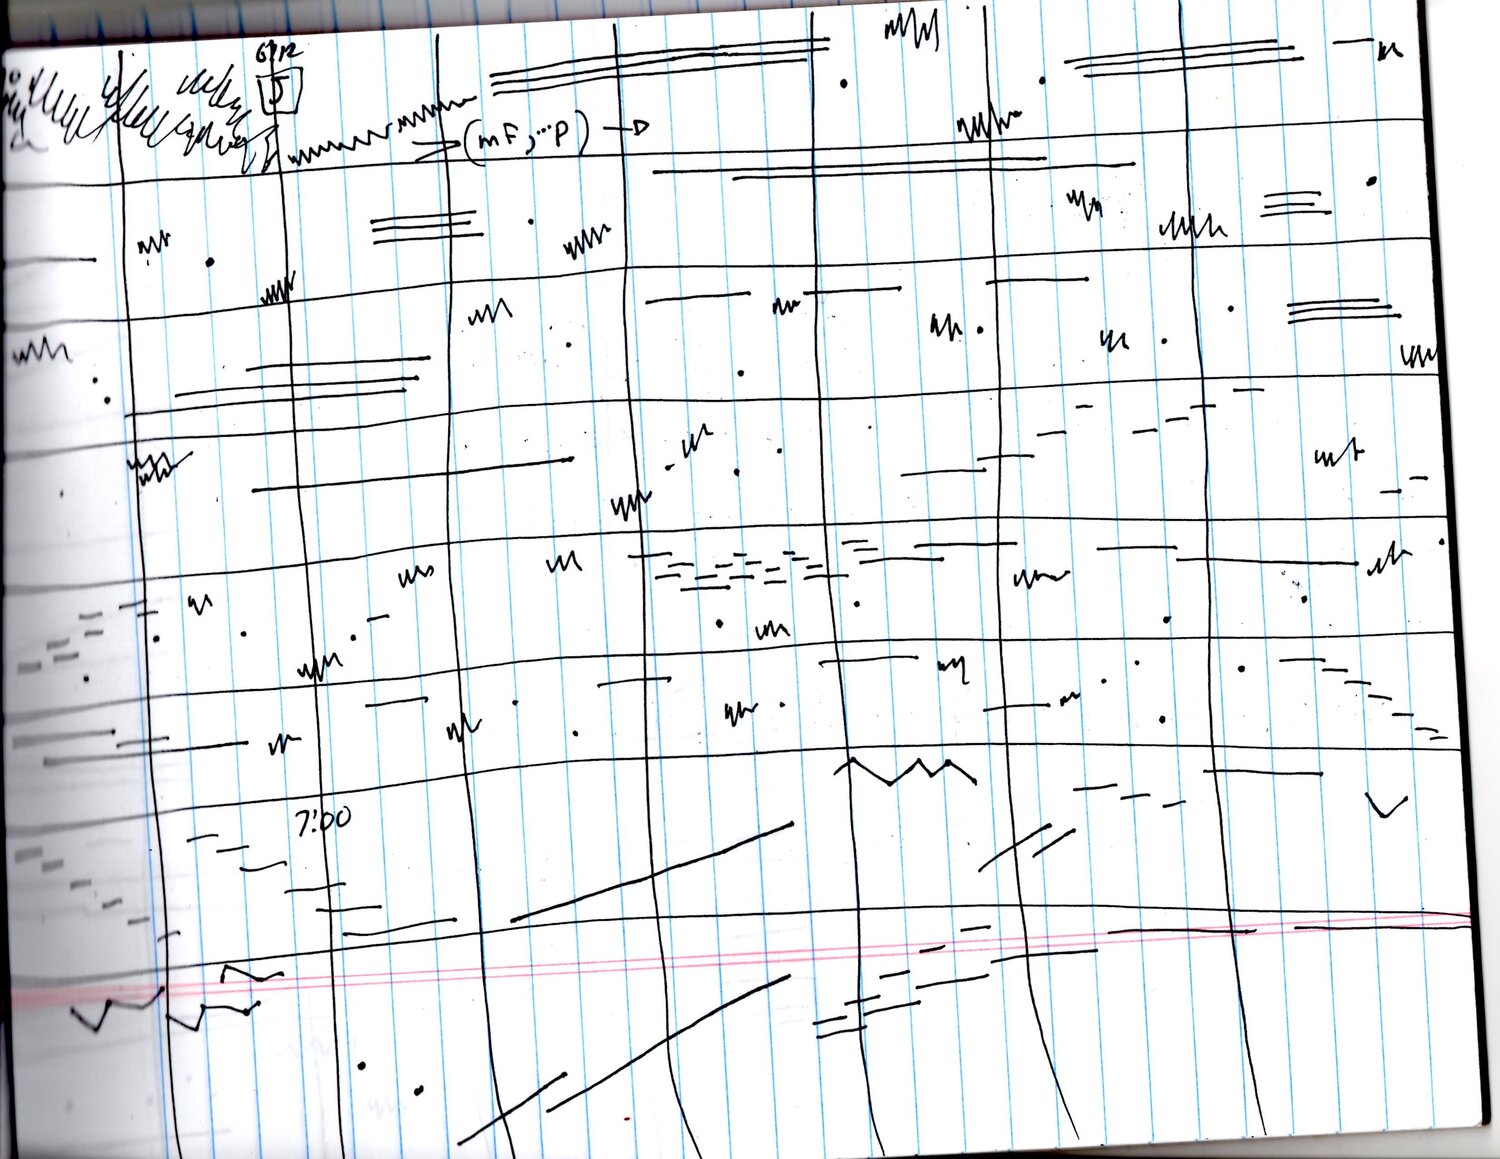 6:12
5
(mF, ... P)
7:00